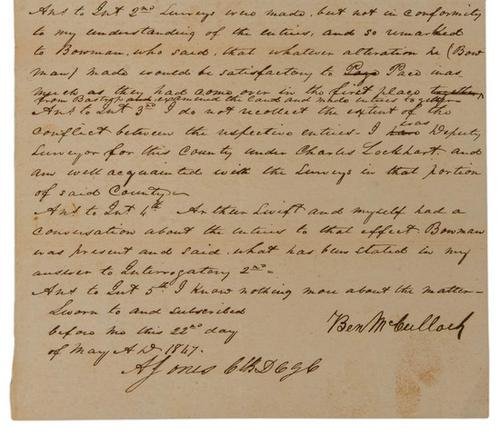 Ans to Int 2nd Surveys were made, but not in conformity
to my understanding of the entries, and so remarked
to Bowman, who said, that whatever alteration he (Bow
man) made would be satisfactory to Pace inas
much as they had come over in the first place together
from Bastrop and examined the land and made entries together
Ans to Int 3rd I do not recollect the extent of the
conflict between the respective entries - I was Deputy
Surveyor for this County under Charles Lockhart and
am well acquainted with the Surveys in that portion
of said County
Ans to Int 4th Arthur Swift and myself had a
conversation about the entries to that effect Bowman
was present and said what has been stated in my
answer to Interrogatory 2nd -
Ans to Int 5th I know nothing more about the matter -
Sworn to and subscribed
before me this 22nd day
of May A D. 1847.
Ben McCulloch
A Jones Clk D C G C